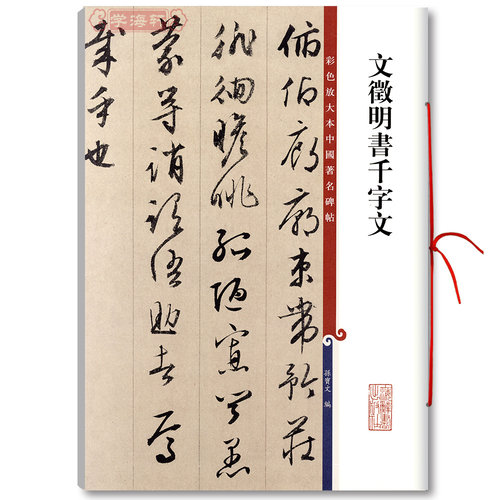 文徵明書千字文
彩色放大本中國著名碑帖
孫寶文 編
俯仰廊廟束帶矜莊
徘徊瞻眺孤陋寡聞愚
蒙等誚謂語助者焉
哉乎也
学海轩